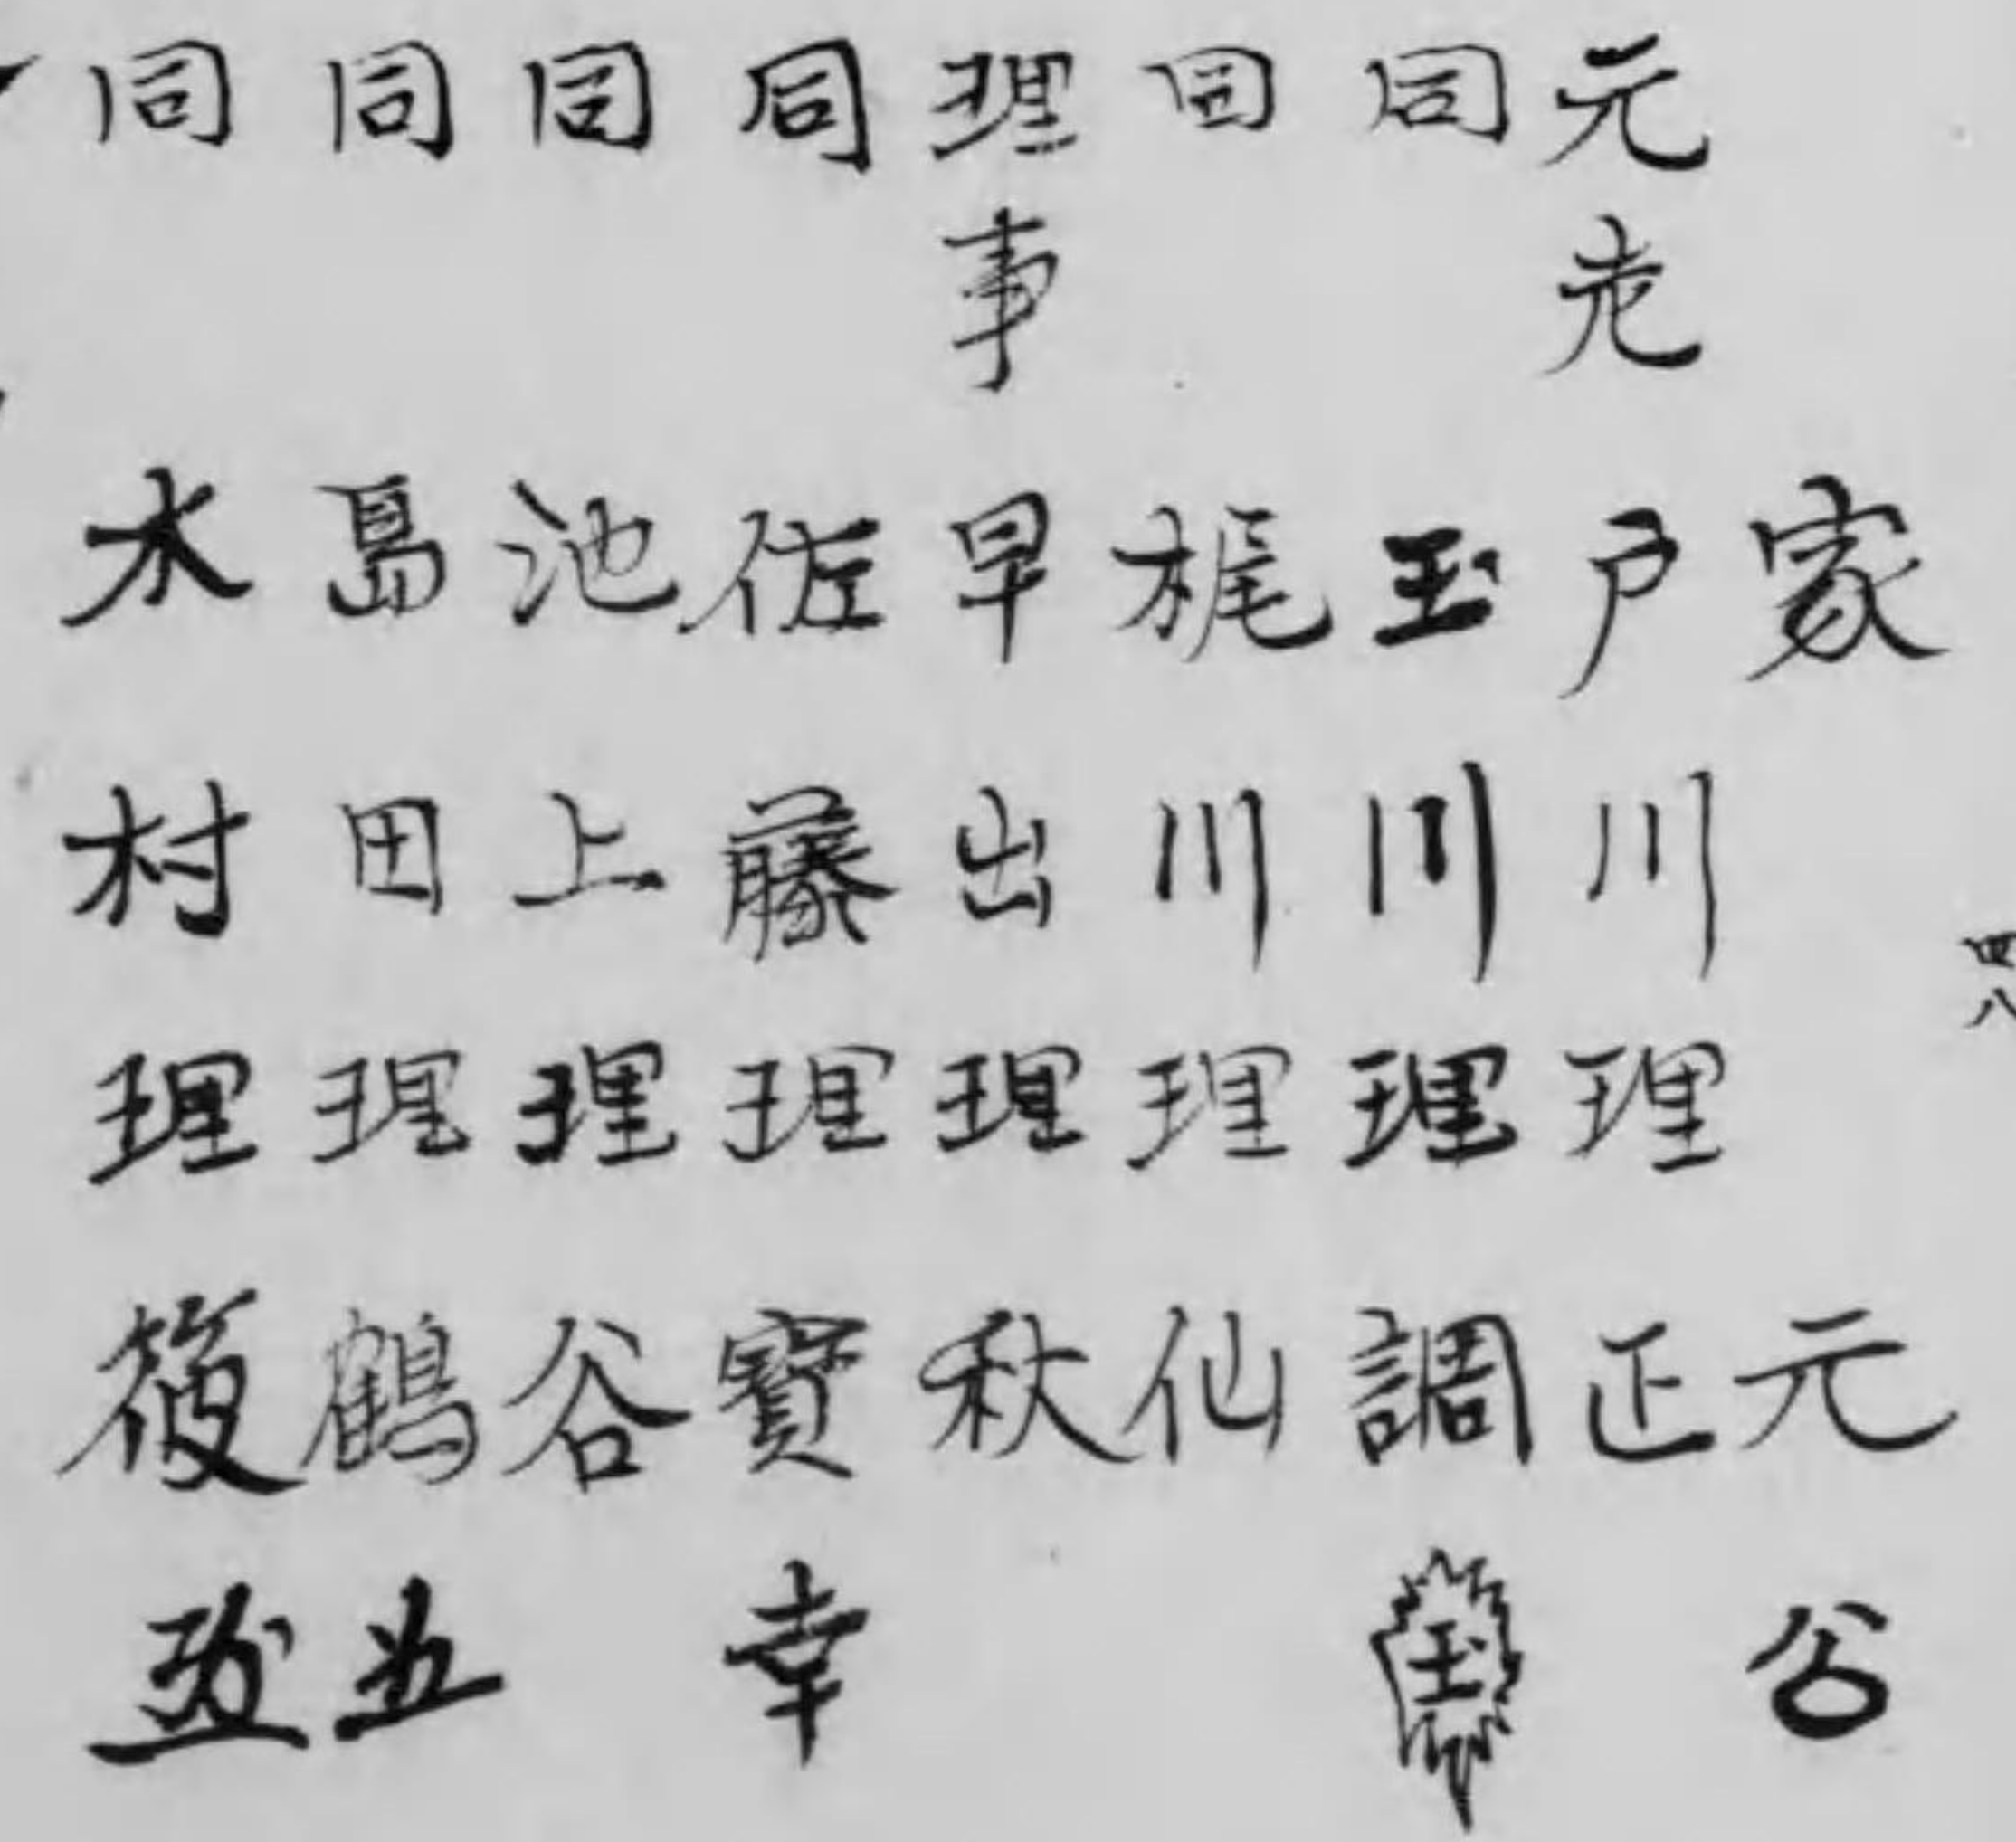 四八
家元 公
元老 戸川理正
同 玉川理調 玉
同 梶川理仙
理事 早出理秋
同 佐藤理寳 幸
同 池上理谷
同 島田理鶴
同 木村理筱